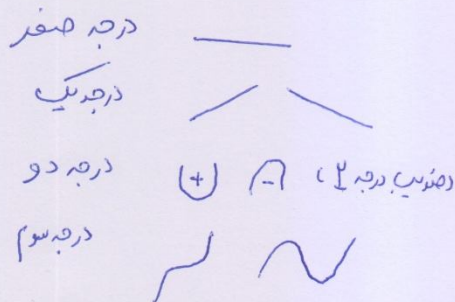 درجه صفر
درجه یک
درجه دو + - (ضریب درجه ۲)
درجه سوم